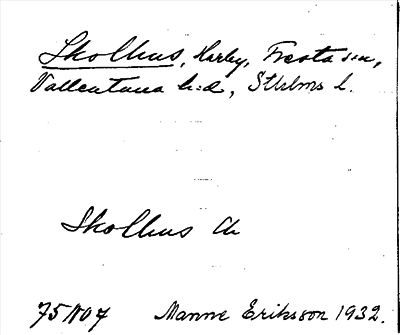 Skolhus, Harby, Fresta sn,
Vallentuna h:d, Sthlms l.
Skolhus
75 NO 7 Manne Eriksson 1932.